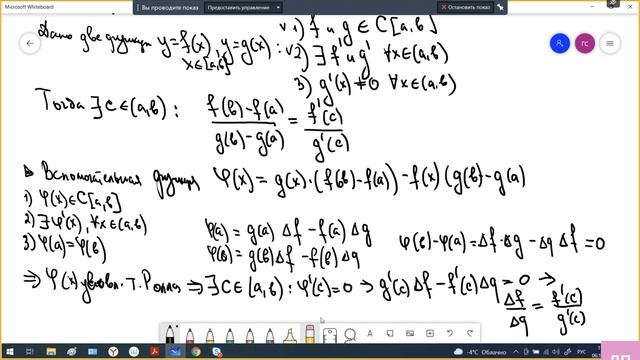 Microsoft Whiteboard
Вы проводите показ
Предоставить управление
Остановить показ
Дано две функции y=f(x), y=g(x) :
x∈[a,b]
√1) f и g ∈ C[a,b]
√2) ∃ f' и g' ∀x∈(a,b)
3) g'(x)≠0 ∀x∈(a,b)
ГС
Тогда ∃ c∈(a,b) : f(b)-f(a) / g(b)-g(a) = f'(c) / g'(c)
Вспомогательная функция φ(x) = g(x)·(f(b)-f(a)) - f(x)(g(b)-g(a)
1) φ(x)∈C[a,b]
2) ∃ φ'(x), ∀x∈(a,b)
3) φ(a)=φ(b)
φ(a) = g(a) Δf - f(a) Δg
φ(b) = g(b) Δf - f(b) Δg
φ(b)-φ(a) = Δf·Δg - Δg Δf = 0
⇒ φ(x) удовл. т. Ролля ⇒ ∃ c∈(a,b) : φ'(c)=0 → g'(c) Δf - f'(c) Δg = 0 →
Δf / Δg = f'(c) / g'(c)
-4°C Облачно
РУС